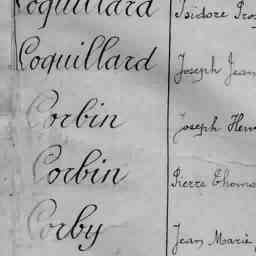 Coquillard Isidore
Coquillard Joseph Jean
Corbin Joseph
Corbin Pierre Thomas
Corby Jean Marie